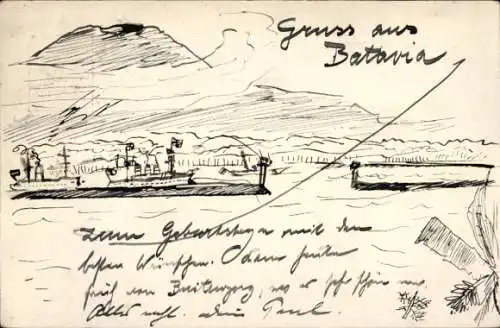 Gruss aus
Batavia
zum Geburtstage mit den
besten Wünschen.
früh von Buitenzorg, wo es sehr schön war.
Alles